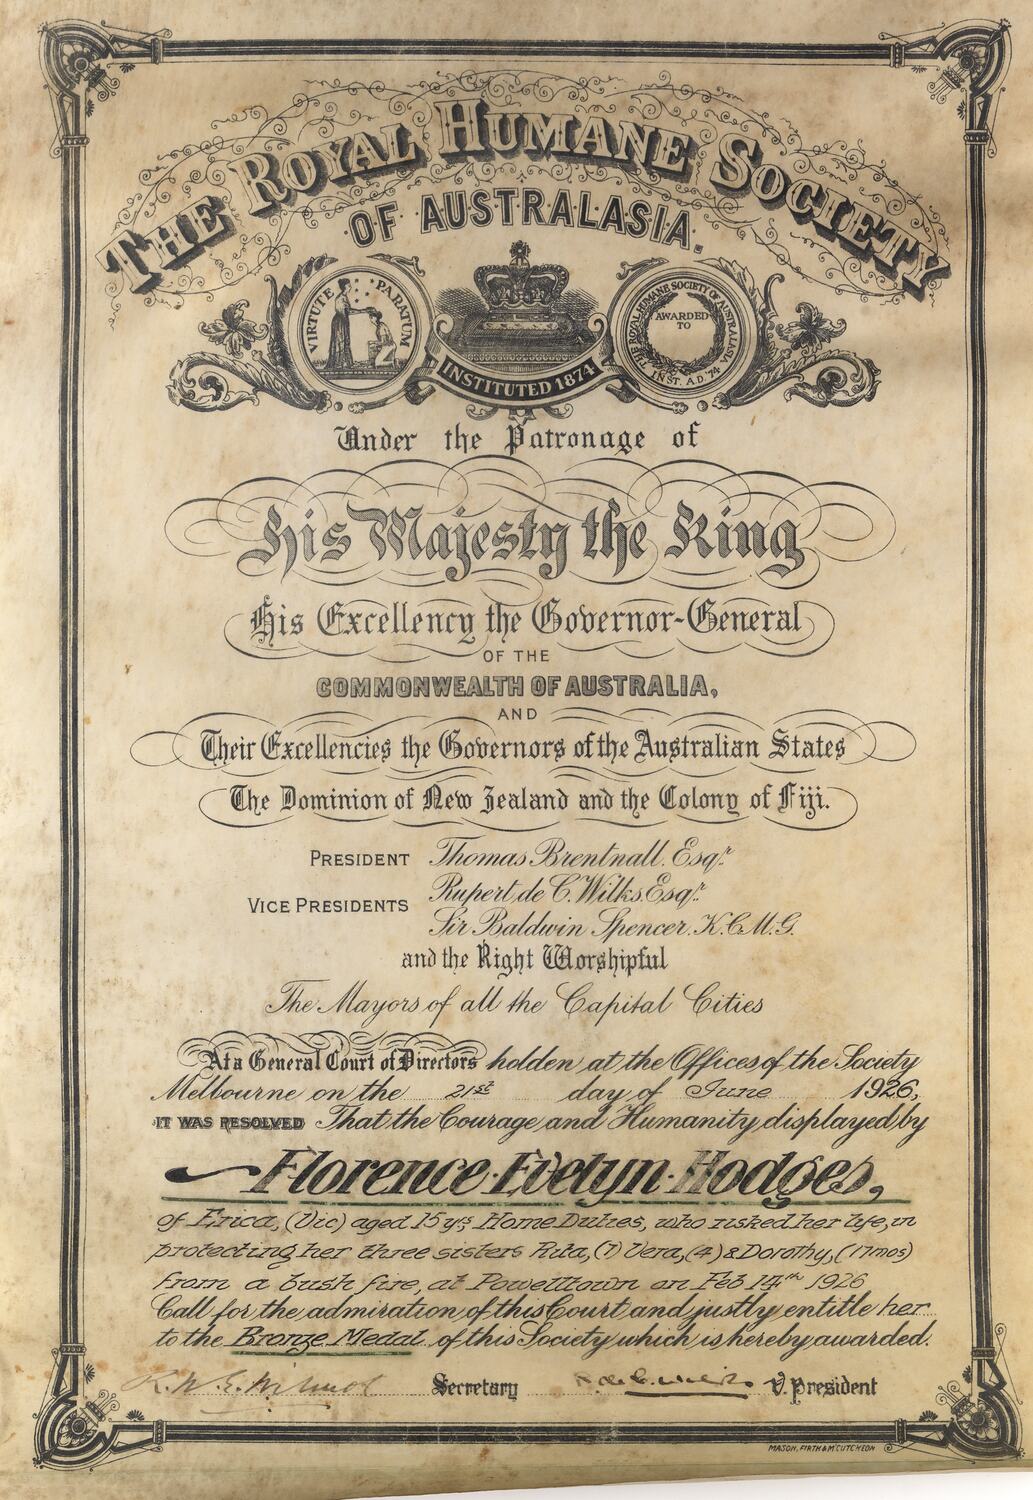 THE ROYAL HUMANE SOCIETY
OF AUSTRALASIA.
VIRTUTE PARATUM
INSTITUTED 1874
THE ROYAL HUMANE SOCIETY OF AUSTRALASIA
AWARDED
TO
INST. A.D. '74
Under the Patronage of
His Majesty the King
His Excellency the Governor-General
OF THE
COMMONWEALTH OF AUSTRALIA,
AND
Their Excellencies the Governors of the Australian States
The Dominion of New Zealand and the Colony of Fiji.
PRESIDENT Thomas Brentnall. Esqr.
VICE PRESIDENTS Rupert de C. Wilks. Esqr.
Sir Baldwin Spencer. K.C.M.G.
and the Right Worshipful
The Mayors of all the Capital Cities
At a General Court of Directors holden at the Offices of the Society
Melbourne on the 21st day of June 1926,
IT WAS RESOLVED That the Courage and Humanity displayed by
Florence Evelyn Hodges,
of Erica, (Vic) aged 15 yrs Home Duties, who risked her life, in
protecting her three sisters Rita, (7) Vera, (4) & Dorothy, (17 mos)
from a bush fire, at Powelltown on Feb 14th 1926
Call for the admiration of this Court and justly entitle her
to the Bronze Medal of this Society which is hereby awarded.
Secretary V. President
MASON, FIRTH & McCUTCHEON